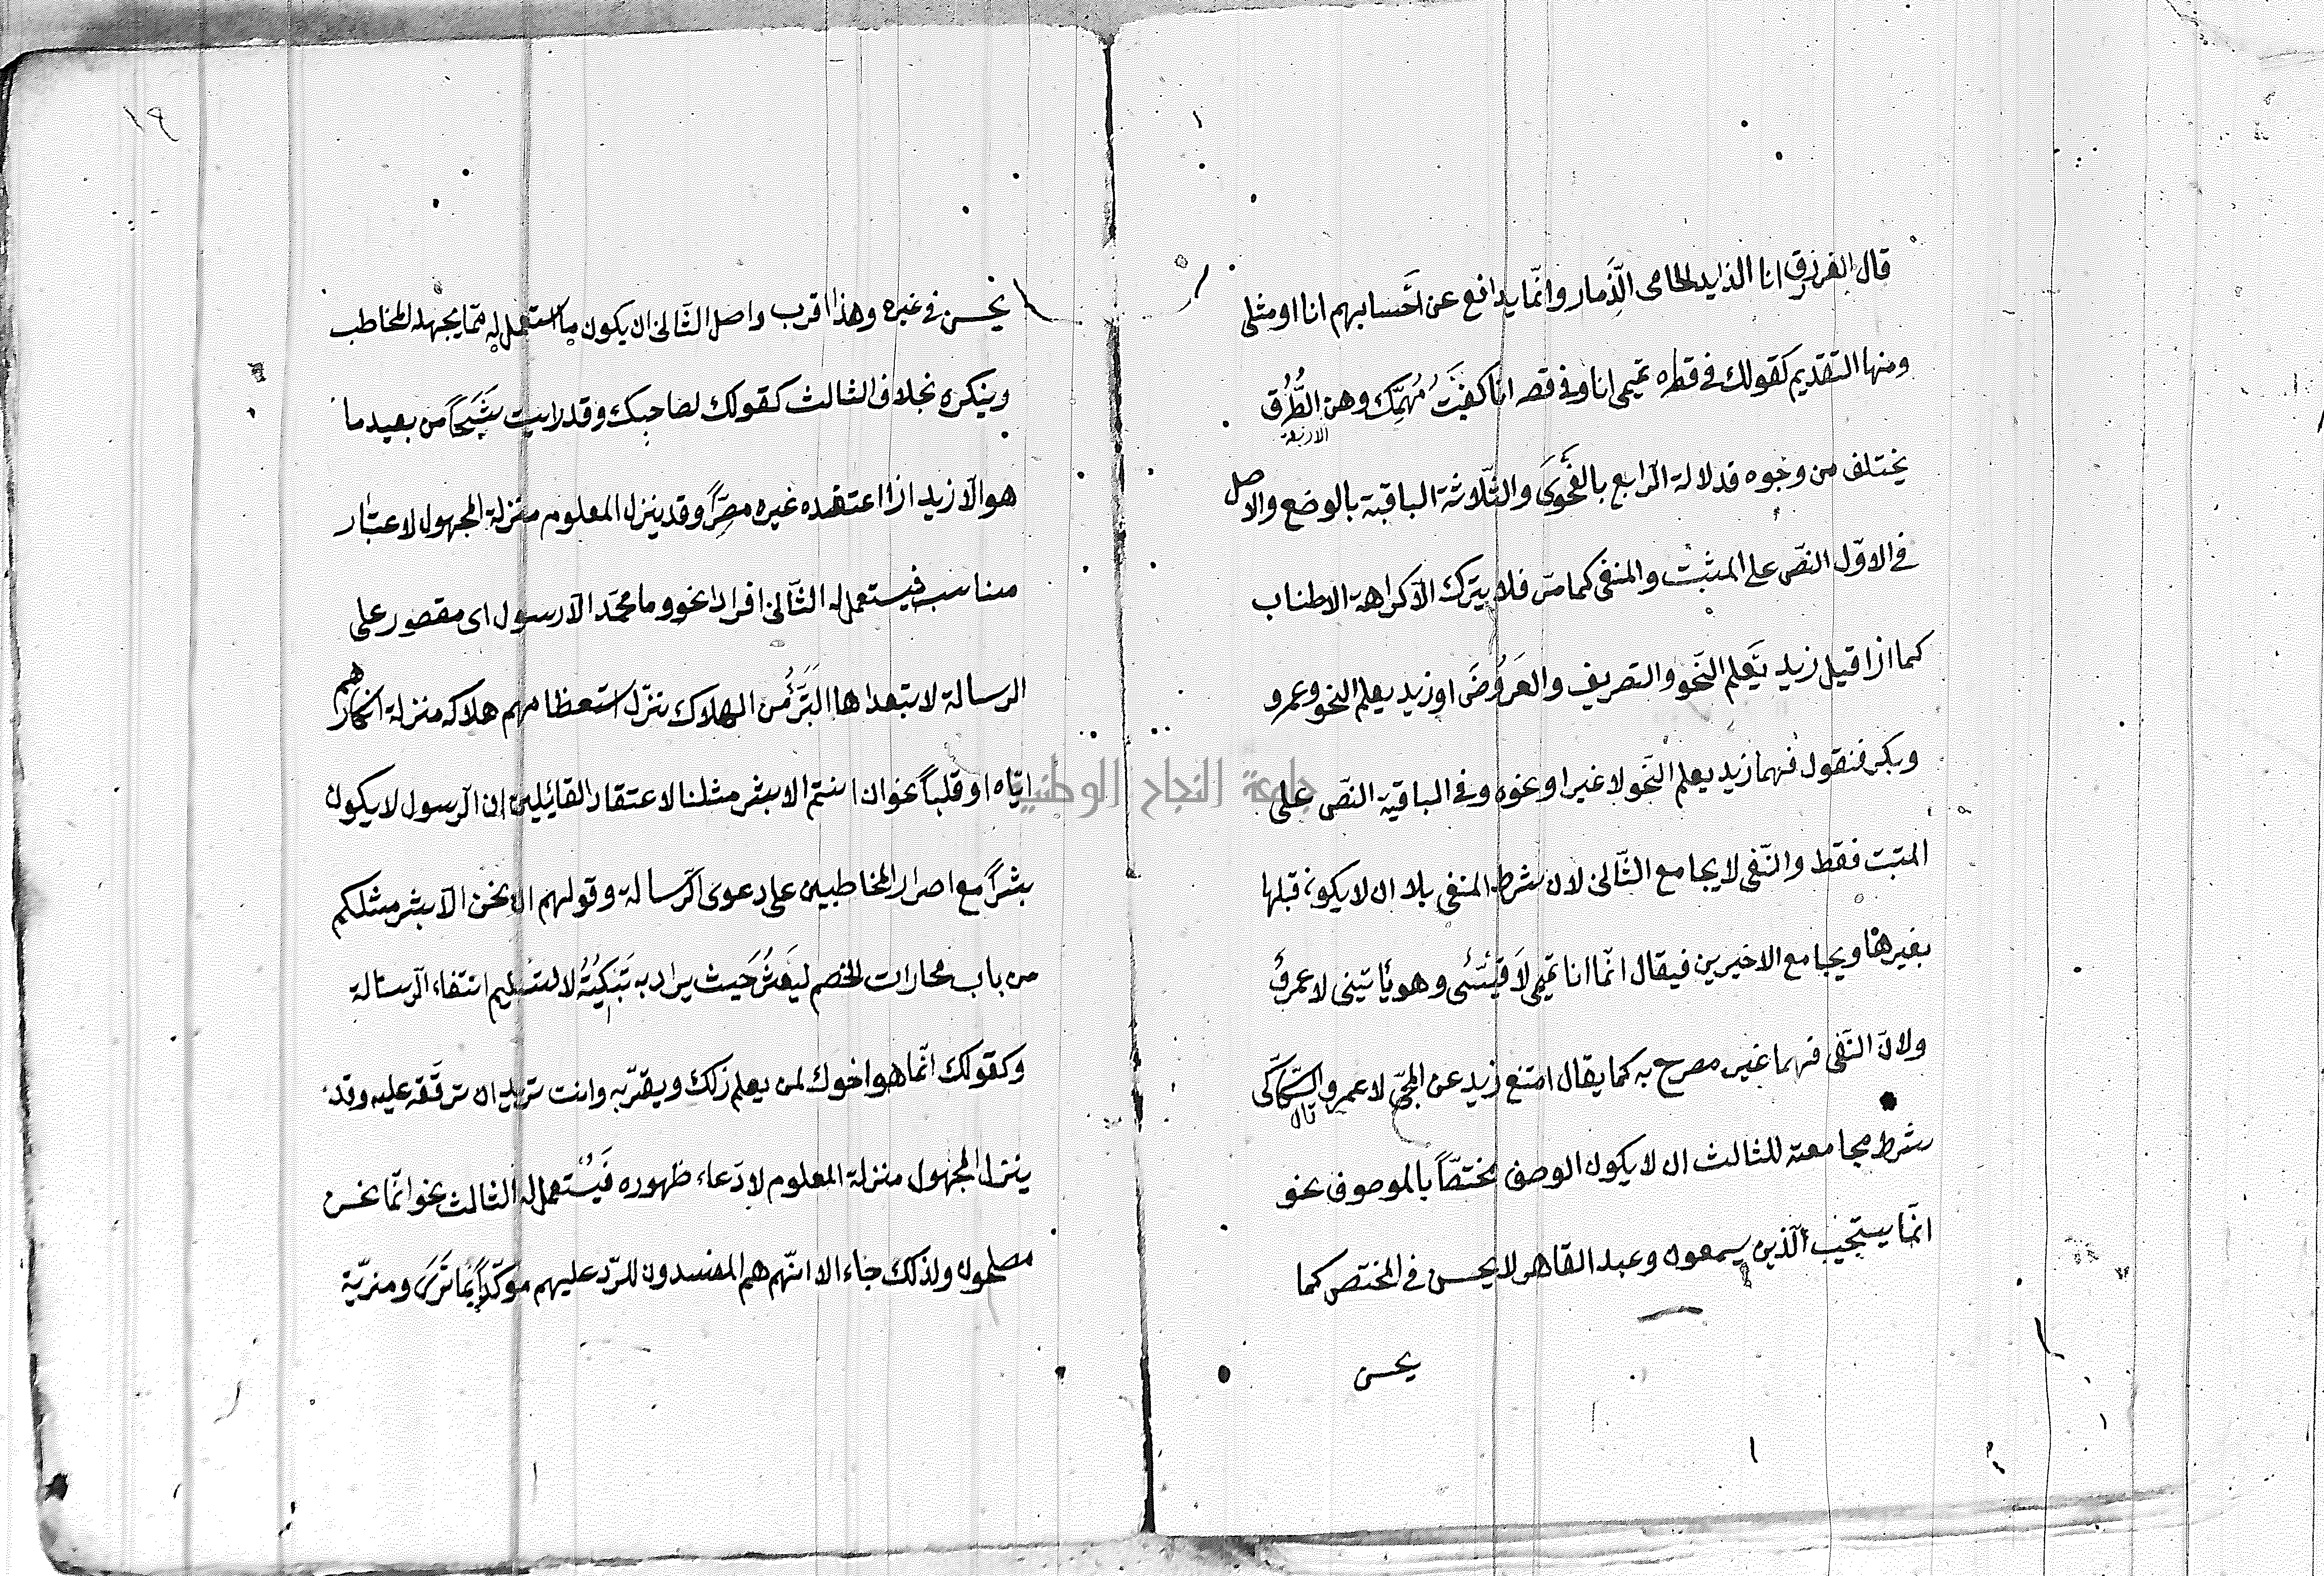 قال الفرزدق انا الذايد الحامى الذِّمار وانّما يدافع عن اَحسابهم انا او مثلى
ومنها التقديم كقولك فى قطره تميمى انا وفى قصه انا كفيتُ مُهمَّك وهن الطُّرُق
الاربعة
يختلف من وجوه فدلالة الرابع بالفَحْوَى والثّلاثة الباقية بالوضع والاصل
فى الاوّل النصّ على المثبت والمنفى كما مرّ فلا يترك الّا كراهة الاطناب
كما اذا قيل زيد يَعلم النّحو والتصريف والعَرُوضَ او زيد يعلم النحو وعمرو
وبكر فنقول فيهما زيد يعلم النّحو لا غير او نحوه وفى الباقية النصّ على
المثبت فقط والنّفى لا يجامع الثّانى لان شرط المنفى بلا ان لا يكون قبلها
بغيرها ويجامع الاخيرين فيقال انّما انا تميمى لا قيسى وهو يأتينى لا عمرو
ولانّ النّفى فيهما غير مصرح به كما يقال امتنع زيد عن المجئ لا عمرو السّكّاكى
قال
شرط مجامعته للثالث ان لا يكون الوصف مختصّاً بالموصوف نحو
انّما يستجيب الّذين يسمعون وعبد القاهر لا يحسن فى المختص كما
يحسن
١٩
يحسن فى غيره وهذا اقرب واصل الثّانى ان يكون ما استعمل له ممّا يجهله المخاطب
وينكره بخلاف الثالث كقولك لصاحبك وقد رايت شَبَحاً من بعيد ما
هو الّا زيد اذا اعتقده غيره مصرّاً وقد ينزل المعلوم منزلة المجهول لاعتبار
مناسب فيستعمل له الثّانى افرادا نحو وما محمّد الّا رسول اى مقصور على
الرسالة لا يتعداها الى التَّبَرُّئ من الهلاك نزّل استعظامهم هلاكه منزلة انكارهم
ايّاه او قلباً نحو ان انتم الا بشر مثلنا لاعتقاد القائلين ان الرسول لا يكون
بشراً مع اصرار المخاطبين على دعوى الرّسالة وقولهم ان نحن الّا بشر مثلكم
من باب مجارات الخصم ليَعثُرَ حيث يراد به تَبكيتُهُ لا لتسليم انتفاء الرسالة
وكقولك انّما هو اخوك لمن يعلم ذلك ويقرّ به وانت تريد ان ترقّقه عليه وقد
ينزل المجهول منزلة المعلوم لادّعاء ظهوره فَيُستعمل له الثالث نحو انّما نحن
مصلحون ولذلك جاء الا انّهم هم المفسدون للرّد عليهم موكّداً بما تَرَى ومزيّة
جامعة النجاح الوطنية